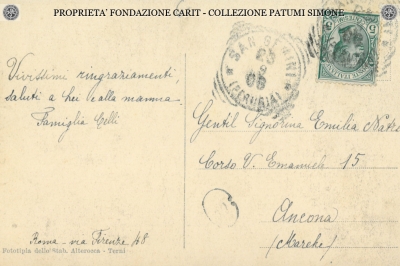 PROPRIETA' FONDAZIONE CARIT - COLLEZIONE PATUMI SIMONE
Vivissimi ringraziamenti,
saluti a lei e alla mamma
Famiglia Celli
Roma - via Firenze 48
Fototipia dello Stab. Alterocca - Terni
(PERUGIA)
5
Gentil Signorina Emilia
Corso V. Emanuele 15
Ancona
(Marche)